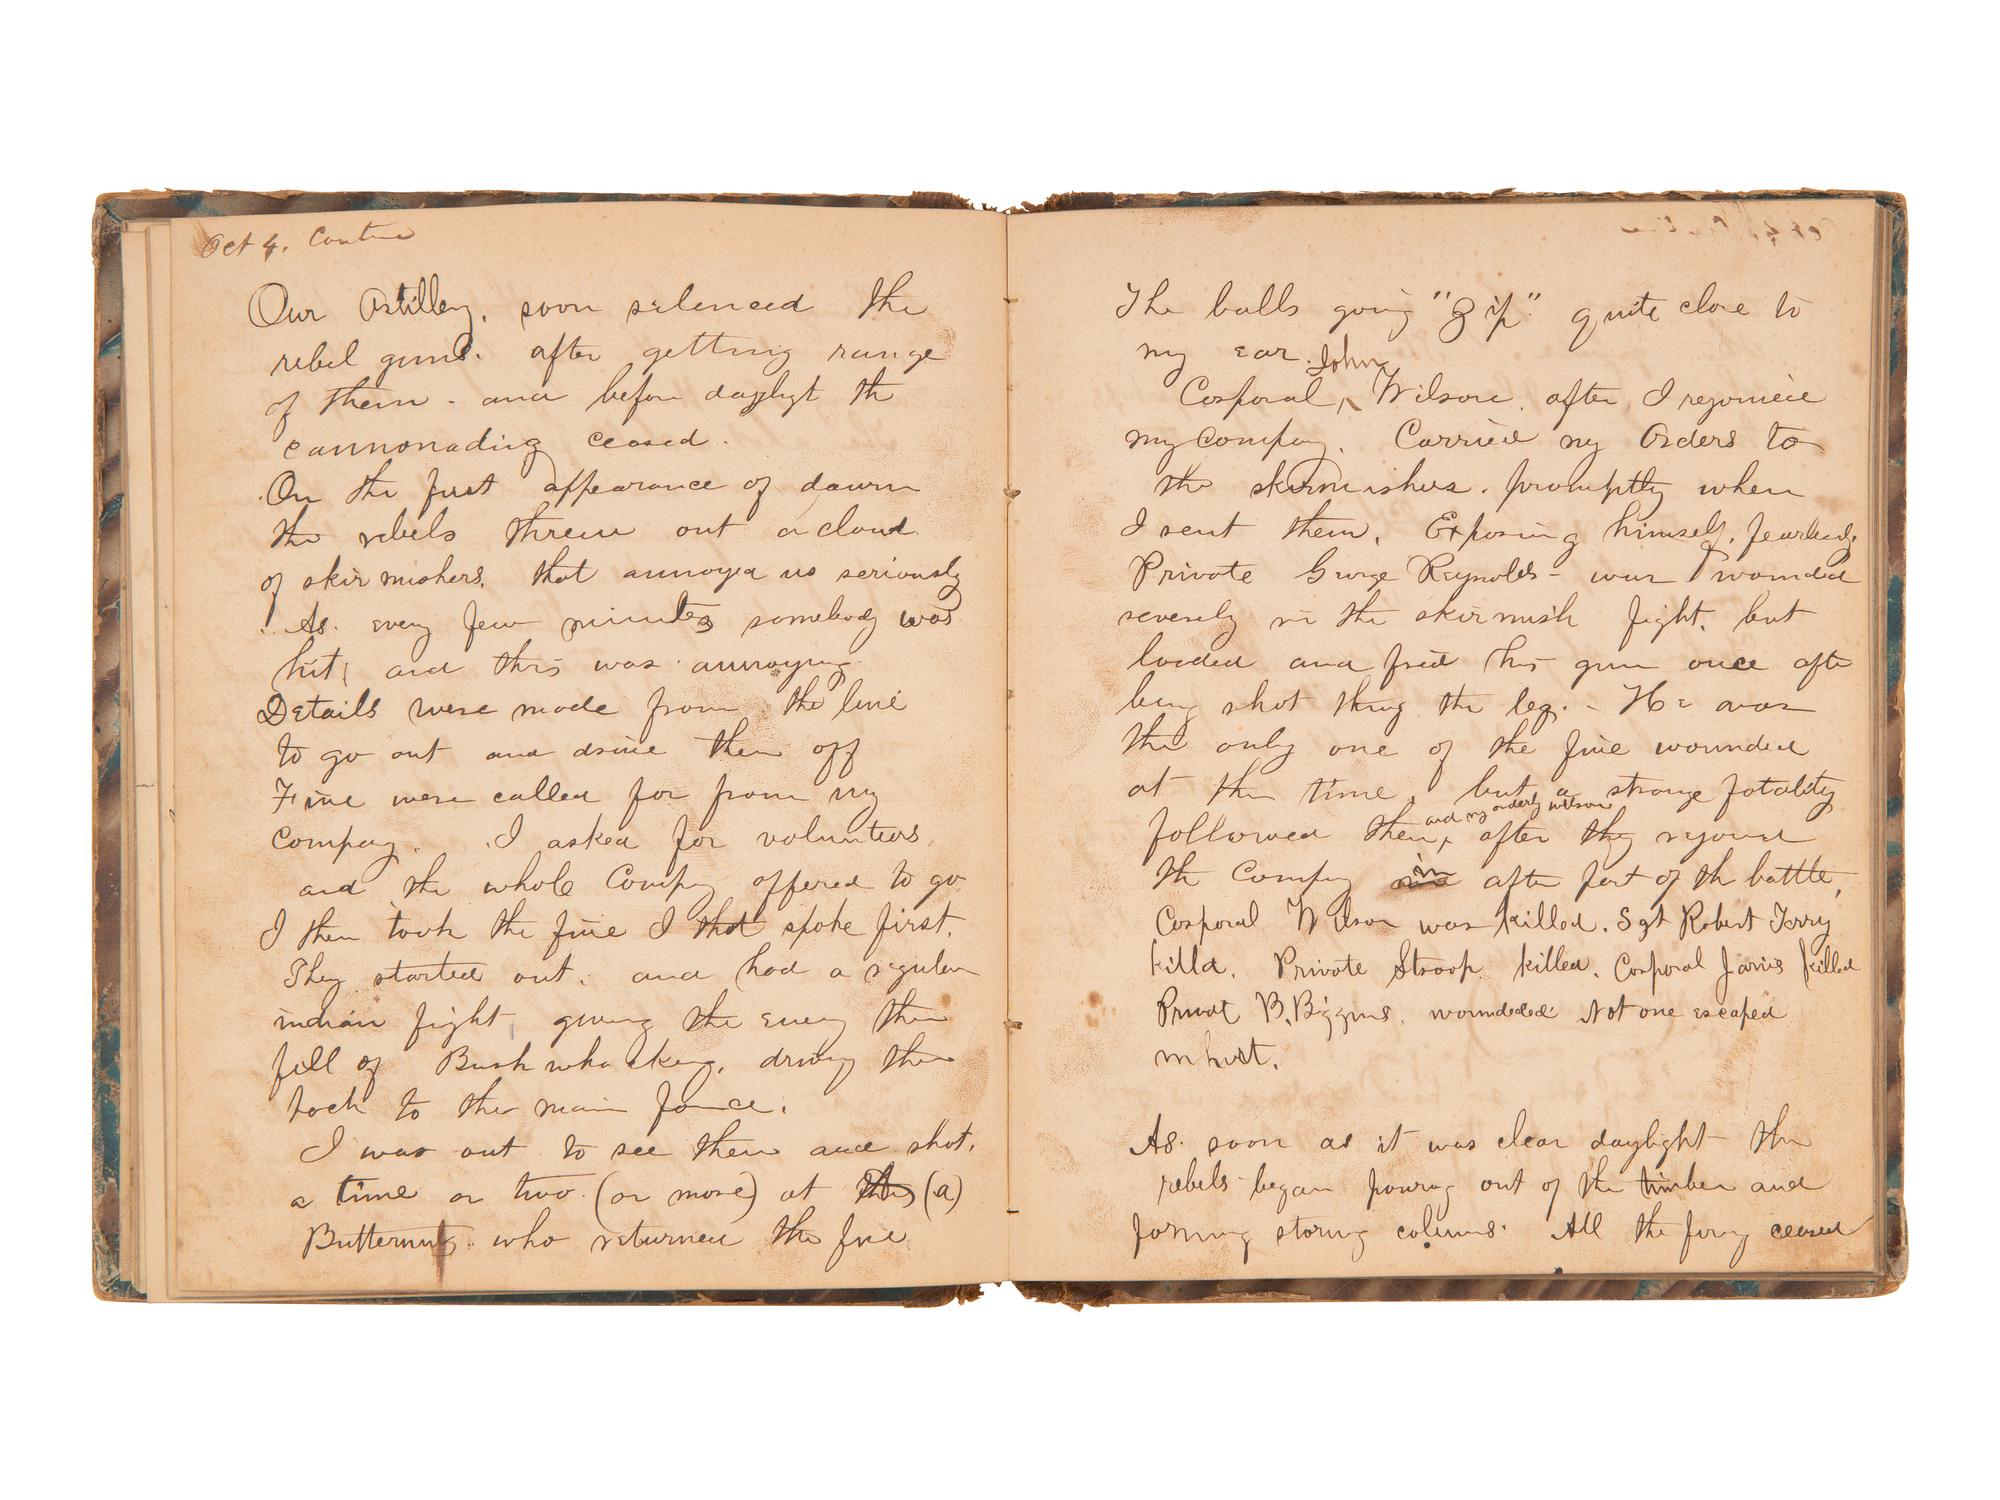 Oct 4. Contine
Our Artillery, soon silenced the
rebel guns. after getting range
of them - and before daylight the
cannonading ceased.
On the first appearance of dawn
the rebels threw out a cloud
of skirmishers, that annoyed us seriously
As. every few minutes somebody was
hit, and this was annoying.
Details were made from the line
to go out and drive them off
Five were called for from my
Company. I asked for volunteers,
and the whole Company offered to go
I then took the five I that spoke first.
They started out. and had a regular
indian fight, giving the enemy their
fill of Bushwhacking, driving them
back to the main force.
I was out to see them and shot,
a time or two (or more) at this (a)
Butternut who returned the fire
The balls going "Zip" quite close to
my ear. John
Corporal ^ Wilson, after I rejoined
my company, Carried my Orders to
the skirmishers, promptly when
I sent them, Exposing himself, fearlessly
Private George Reynolds - was wounded
severely in the skirmish fight, but
loaded and fired his gun once after
being shot thrug the leg. - He was
the only one of the five wounded
at the time, but a strange fatality
and my orderly Wilson
followed them, after they rejoined
the Company in after part of the battle,
Corporal Wilson was killed. Sgt Robert Terry
killd. Private Stroop killed, Corporal Jarvis killed
Privat B. Biggins. wounded Not one escaped
unhurt.
As soon as it was clear daylight the
rebels began pouring out of the timber and
forming storming colums. All the firing ceased